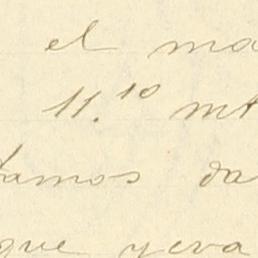 el ma
11.10 mt
tamos da
que yeva